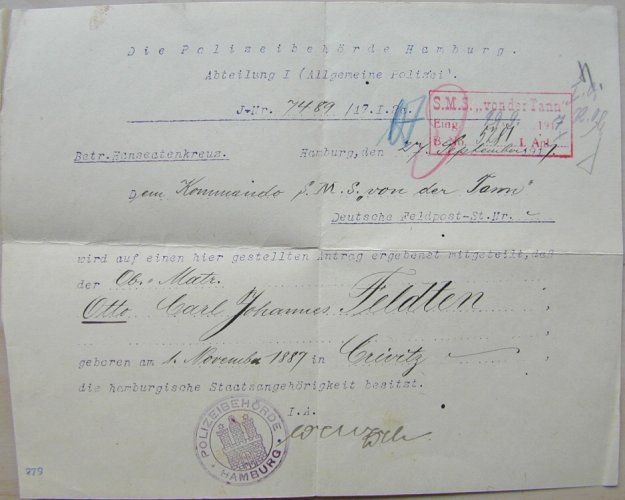 Die Polizeibehörde Hamburg.
Abteilung I (Allgemeine Polizei).
J-Nr. 7489 /17.I.
S.M.S. „von der Tann"
Eing. 191
5281 I. Anl.
Betr. Hanseatenkreuz.
Hamburg, den 27. September 191
Dem Kommando S.M.S. „von der Tann"
Deutsche Feldpost-St.Nr.
wird auf einen hier gestellten Antrag ergebenst mitgeteilt, daß
der Ob. Matr.
Otto Carl Johannes Feldten,
geboren am 1. November 1887 in Crivitz
die hamburgische Staatsangehörigkeit besitzt.
I.A.
POLIZEIBEHÖRDE
HAMBURG
279